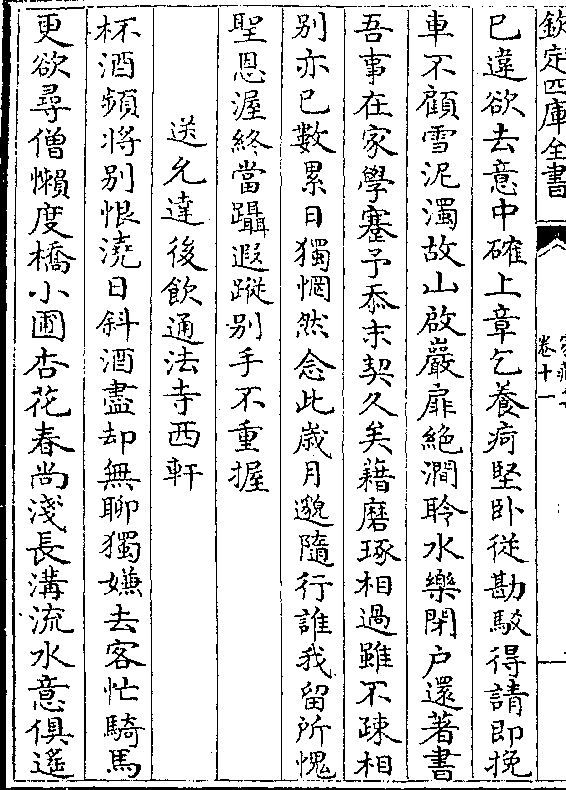 欽定四庫全書
卷十一
已違欲去意中確上章乞養疴堅卧從勘駁得請即挽
車不顧雪泥濁故山啟巖扉絶澗聆水樂閉户還著書
吾事在家學蹇予忝末契久矣藉磨琢相過雖不疎相
别亦已數累日獨惘然念此歲月邈隨行誰我留所愧
聖恩渥終當躡遐蹤别手不重握
送允達後飲通法寺西軒
杯酒頻將别恨澆日斜酒盡却無聊獨嫌去客忙騎馬
更欲尋僧懶度橋小圃杏花春尚淺長溝流水意俱遙